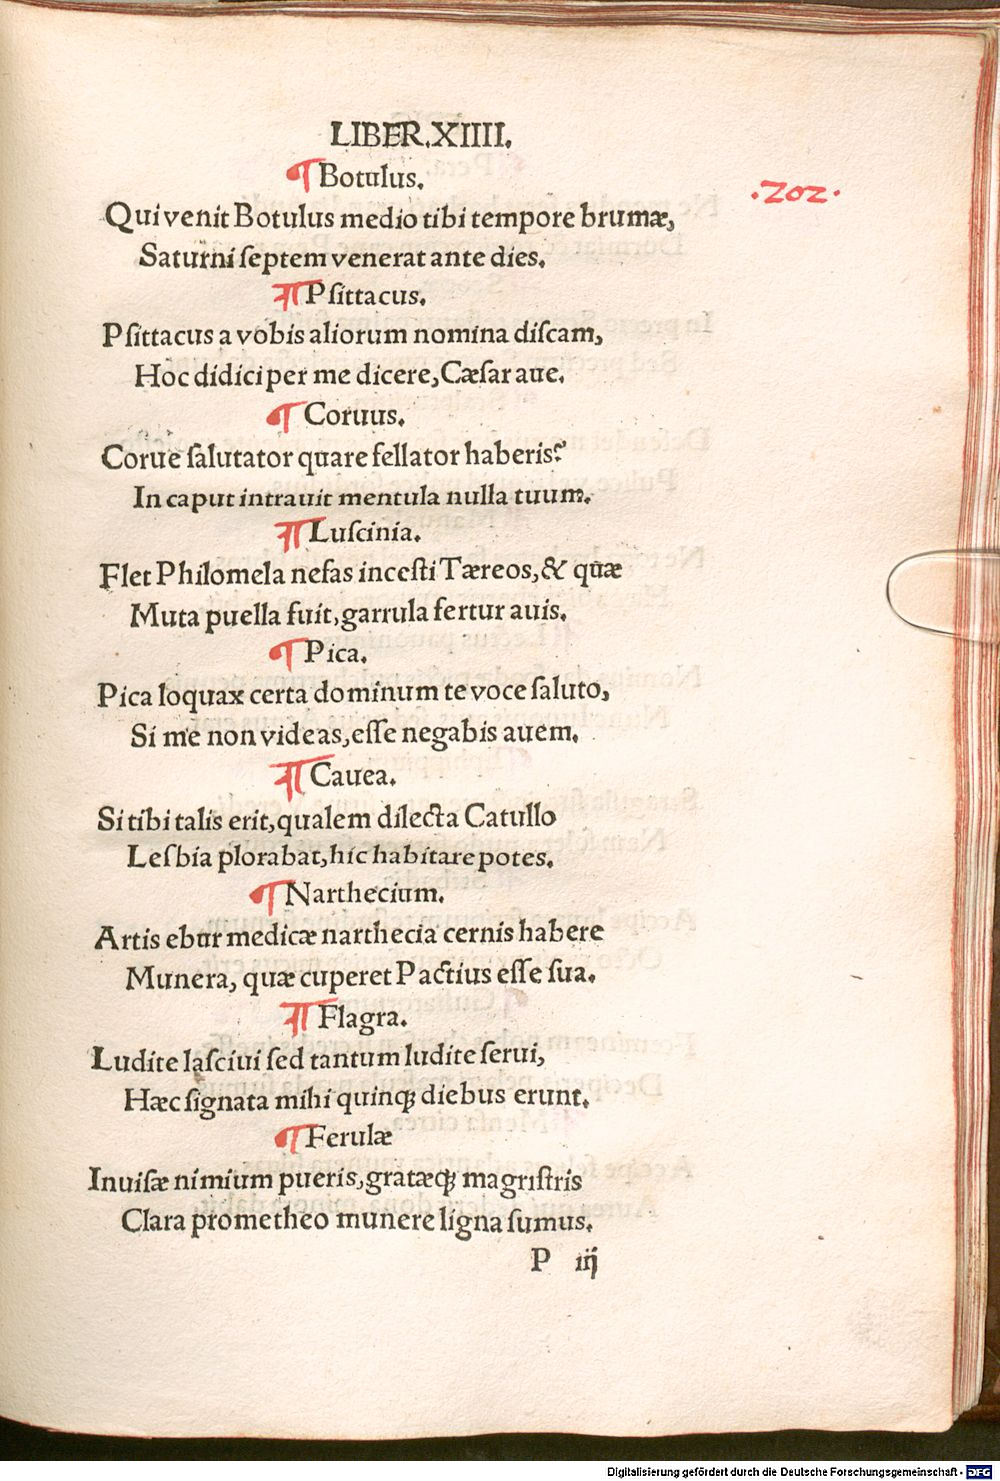 LIBER.XIIII.
¶Botulus.
·202·
Qui venit Botulus medio tibi tempore brumæ,
Saturni ſeptem venerat ante dies.
¶Pſittacus.
Pſittacus a vobis aliorum nomina diſcam,
Hoc didici per me dicere, Cæſar aue.
¶Coruus.
Corue ſalutator quare fellator haberis?
In caput intrauit mentula nulla tuum.
¶Luſcinia.
Flet Philomela nefas inceſti Tæreos, & quæ
Muta puella fuit, garrula fertur auis.
¶Pica.
Pica loquax certa dominum te voce ſaluto,
Si me non videas, eſſe negabis auem.
¶Cauea.
Si tibi talis erit, qualem dilecta Catullo
Leſbia plorabat, hic habitare potes.
¶Narthecium.
Artis ebur medicæ narthecia cernis habere
Munera, quæ cuperet Pactius eſſe ſua.
¶Flagra.
Ludite laſciui ſed tantum ludite ſerui,
Hæc ſignata mihi quinqꝫ diebus erunt.
¶Ferulæ
Inuiſæ nimium pueris, gratæqꝫ magriſtris
Clara prometheo munere ligna ſumus.
P iij
Digitalisierung gefördert durch die Deutsche Forschungsgemeinschaft - DFG